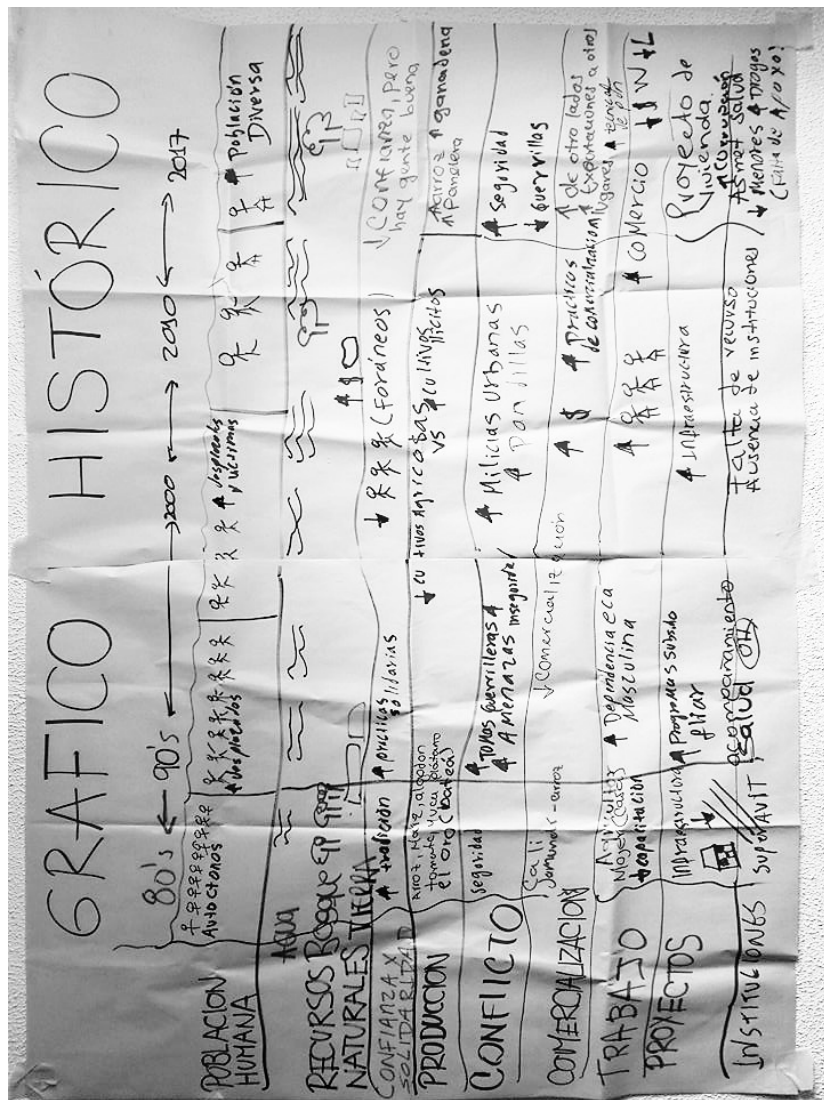 GRAFICO HISTÓRICO
80's ← 90's ←→ 2000 ←→ 2010 ←→ 2017
POBLACION
HUMANA
Autoctonos
↑ Desplazados
↑ desplazados
y victimas
↑ Población
Diversa
RECURSOS
NATURALES
AGUA
Bosque
TIERRA
CONFIANZA X
SOLIDARIDAD
↑ tradición
↑ prácticas
solidarias
↓ (Foráneos)
↑ $
↓ Confianza, pero
hay gente buena
PRODUCCION
Arroz, Maiz, algodon
tomate, yuca, plátano
el oro (batea)
↓ cultivos Agricolas
vs ↑ cultivos
ilícitos
↑ arroz ↑ ganaderia
↑ panelera
CONFLICTO
Seguridad
↑ Tomas guerrilleras ↑
↑ Amenazas inseguridad
↑ Milicias Urbanas
↑ Pandillas
↑ Seguridad
↓ Guerrillas
COMERCIALIZACION
Cali
Jamundí - arroz
↓ Comercialización
↑ $
↑ Practicas
de comercialización
↑ de otro lados
↑ Exportaciones a otros
lugares,
TRABAJO
Agricultor
Mujer
↓ capacitación
↑ Dependencia eca
Masculina
↑
↑ Comercio
PROYECTOS
Infraestructura
↑ Programas subsido
fliar
↑ Infraestructura
Proyecto de
Vivienda.
INSTITUCIONES
acompañamiento
Salud
Falta de recurso
Ausencia de instituciones
↑ Corrupción
Asmet Salud
↓ Menores ↑ drogas
(Falta de Apoyo)